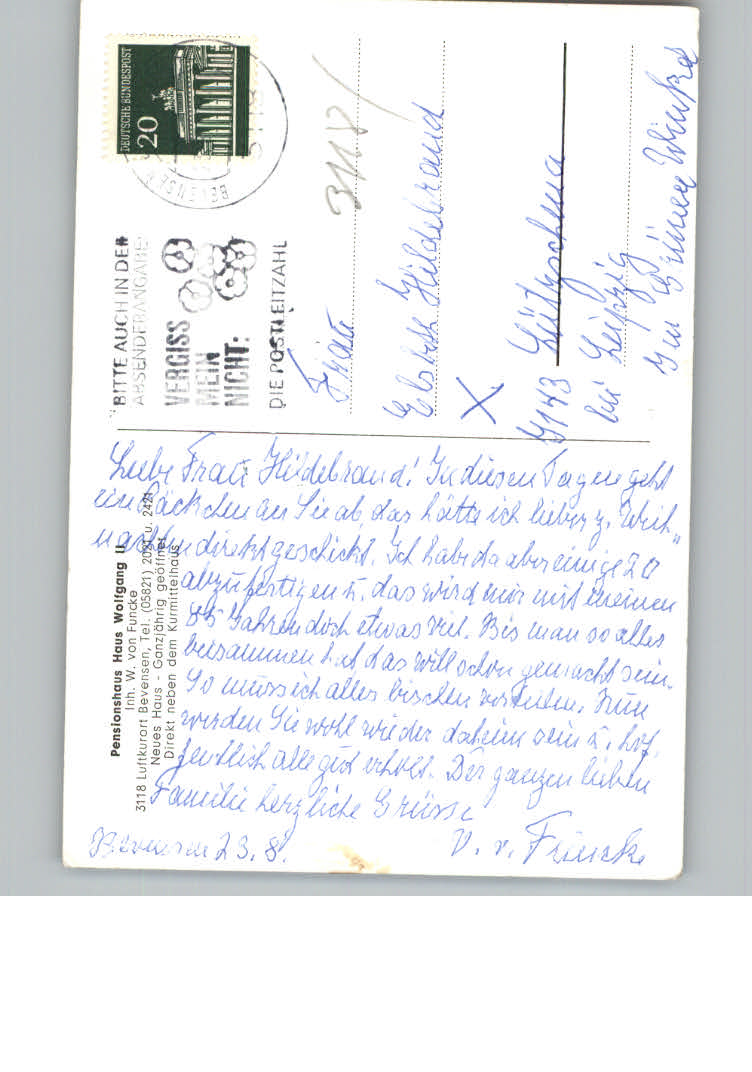 DEUTSCHE BUNDESPOST
20
BEVENSEN
3118
"BITTE AUCH IN DER
ABSENDERANGABE:
VERGISS
MEIN
NICHT:
DIE POSTLEITZAHL
3118/
Frau
Elsbeth Hildebrand
X
7143 Lützschena
bei Leipzig
Im Grünen Winkel
Pensionshaus Haus Wolfgang II
Inh. W. von Funcke
3118 Luftkurort Bevensen, Tel. (05821) 2021 u. 2421
Neues Haus - Ganzjährig geöffnet
Direkt neben dem Kurmittelhaus
Liebe Frau Hildebrand! In diesen Tagen geht
ein Päckchen an Sie ab, das hätte ich lieber z. Weih„
nachten direkt geschickt. Ich habe da aber einige 20
abzufertigen u. das wird mir mit meinen
85 Jahren doch etwas viel. Bis man so alles
beisammen hat das will schon gemacht sein.
So muss ich alles bischen verteilen. Nun
werden Sie wohl wieder daheim sein u. hof„
fentlich alle gut erholt. Der ganzen lieben
Familie herzliche Grüsse
V. v. Funcke
Bevensen 23. 8.